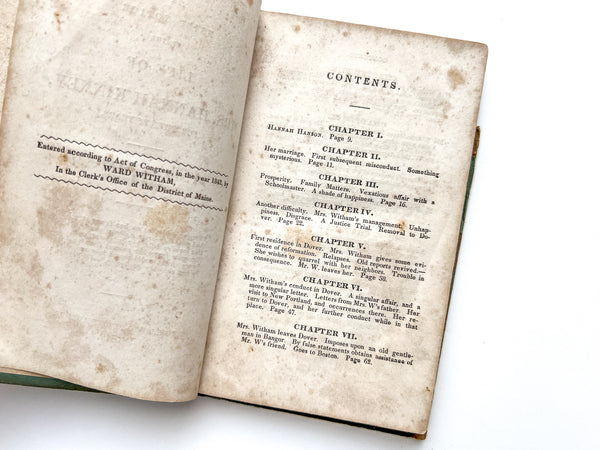 Entered according to Act of Congress, in the year 1842, by
WARD WITHAM,
In the Clerk's Office of the District of Maine.
CONTENTS.
CHAPTER I.
HANNAH HANSON. Page 9.
CHAPTER II.
Her marriage. First subsequent misconduct. Something
mysterious. Page 11.
CHAPTER III.
Prosperity. Family Matters. Vexatious affair with a
Schoolmaster. A shade of happiness. Page 16.
CHAPTER IV.
Another difficulty. Mrs. Witham's management. Unhap-
piness. Disgrace. A Justice Trial. Removal to Do-
ver. Page 22.
CHAPTER V.
First residence in Dover. Mrs. Witham gives some evi-
dence of reformation. Relapses. Old reports revived.—
She wishes to quarrel with her neighbors. Trouble in
consequence. Mr. W. leaves her. Page 38.
CHAPTER VI.
Mrs. Witham's conduct in Dover. A singular affair, and a
more singular letter. Letters from Mrs. W's father. Her
visit to New Portland, and occurrences there. Her re-
turn to Dover, and her further conduct while in that
place. Page 47.
CHAPTER VII.
Mrs. Witham leaves Dover. Imposes upon an old gentle-
man in Bangor. By false statements obtains assistance of
Mr. W's friend. Goes to Boston. Page 62.